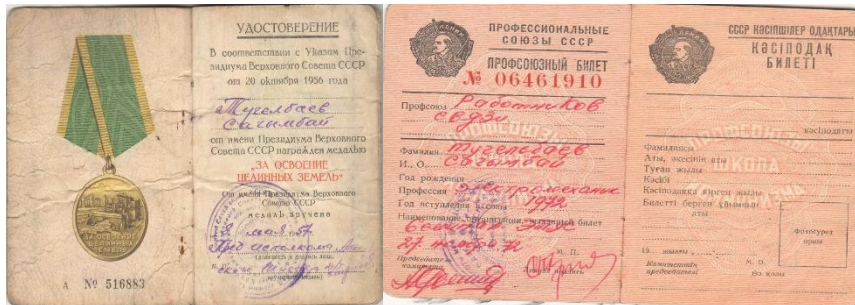 УДОСТОВЕРЕНИЕ
В соответствии с Указом Пре-
зидиума Верховного Совета СССР
от 20 октября 1956 года
Тугелбаев
Сагымбай
от имени Президиума Верховного
Совета СССР награжден медалью
"ЗА ОСВОЕНИЕ
ЦЕЛИННЫХ ЗЕМЕЛЬ"
От имени Президиума Верховного
Совета СССР
медаль вручена
мая 57
ЗА ОСВОЕНИЕ
ЦЕЛИННЫХ
ЗЕМЕЛЬ
А № 516883
ПРОФЕССИОНАЛЬНЫЕ
СОЮЗЫ СССР
ПРОФСОЮЗНЫЙ БИЛЕТ
№ 06461910
Профсоюз Работников
связи
Фамилия Тугельбаев
И., О. Сагымбай
Год рождения
Профессия Электромеханик
Год вступления в союз 1972
Наименование организации, выдавшей билет
27 ноября 72
Председатель
комитета
Личная подпись
М. П.
СССР КӘСІПШІЛЕР ОДАҚТАРЫ
КӘСІПОДАҚ
БИЛЕТІ
кәсіподағы
Фамилиясы
Аты, әкесінің аты
Туған жылы
Кәсібі
Кәсіподаққа кірген жылы
Билетті берген ұйымның
аты
Фотосурет
орны
19 жылғы
М. П.
Комитеттің
председателі
Өз қолы